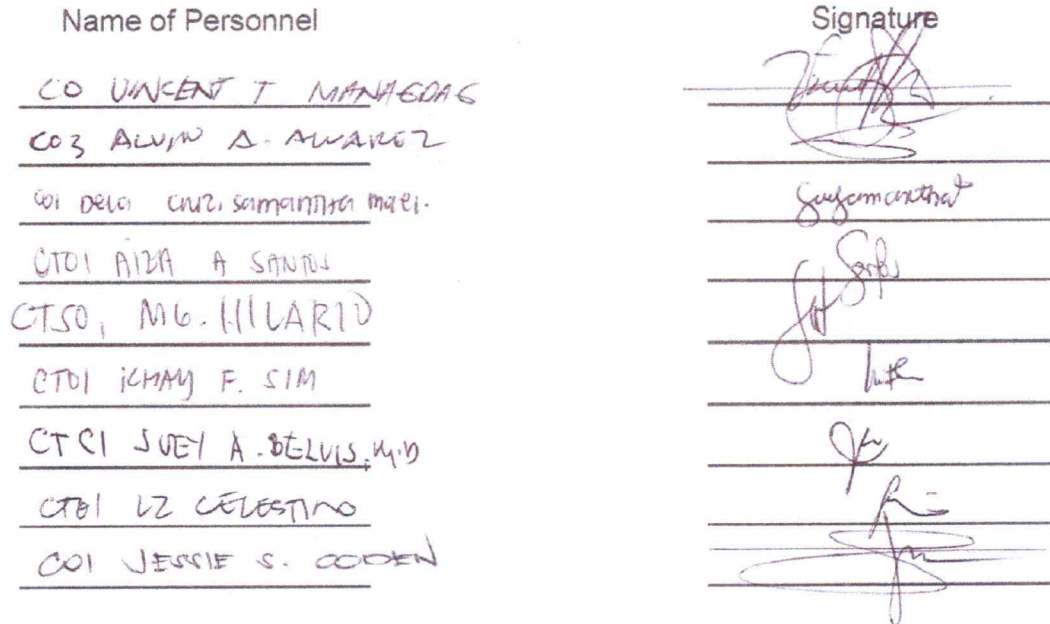 Name of Personnel Signature
CO VINCENT T MANAGDAG
CO3 ALVIN A. ALVAREZ
CO1 Dela Cruz, Samantha Mae I.
CTO1 AIZA A SANTOS
CTSO, MG. HILARIO
CTO1 ICHAY F. SIM
CTCI JUEY A. BELVIS, M.D
CTO1 LZ CELESTINO
CO1 JESSIE S. CODEN